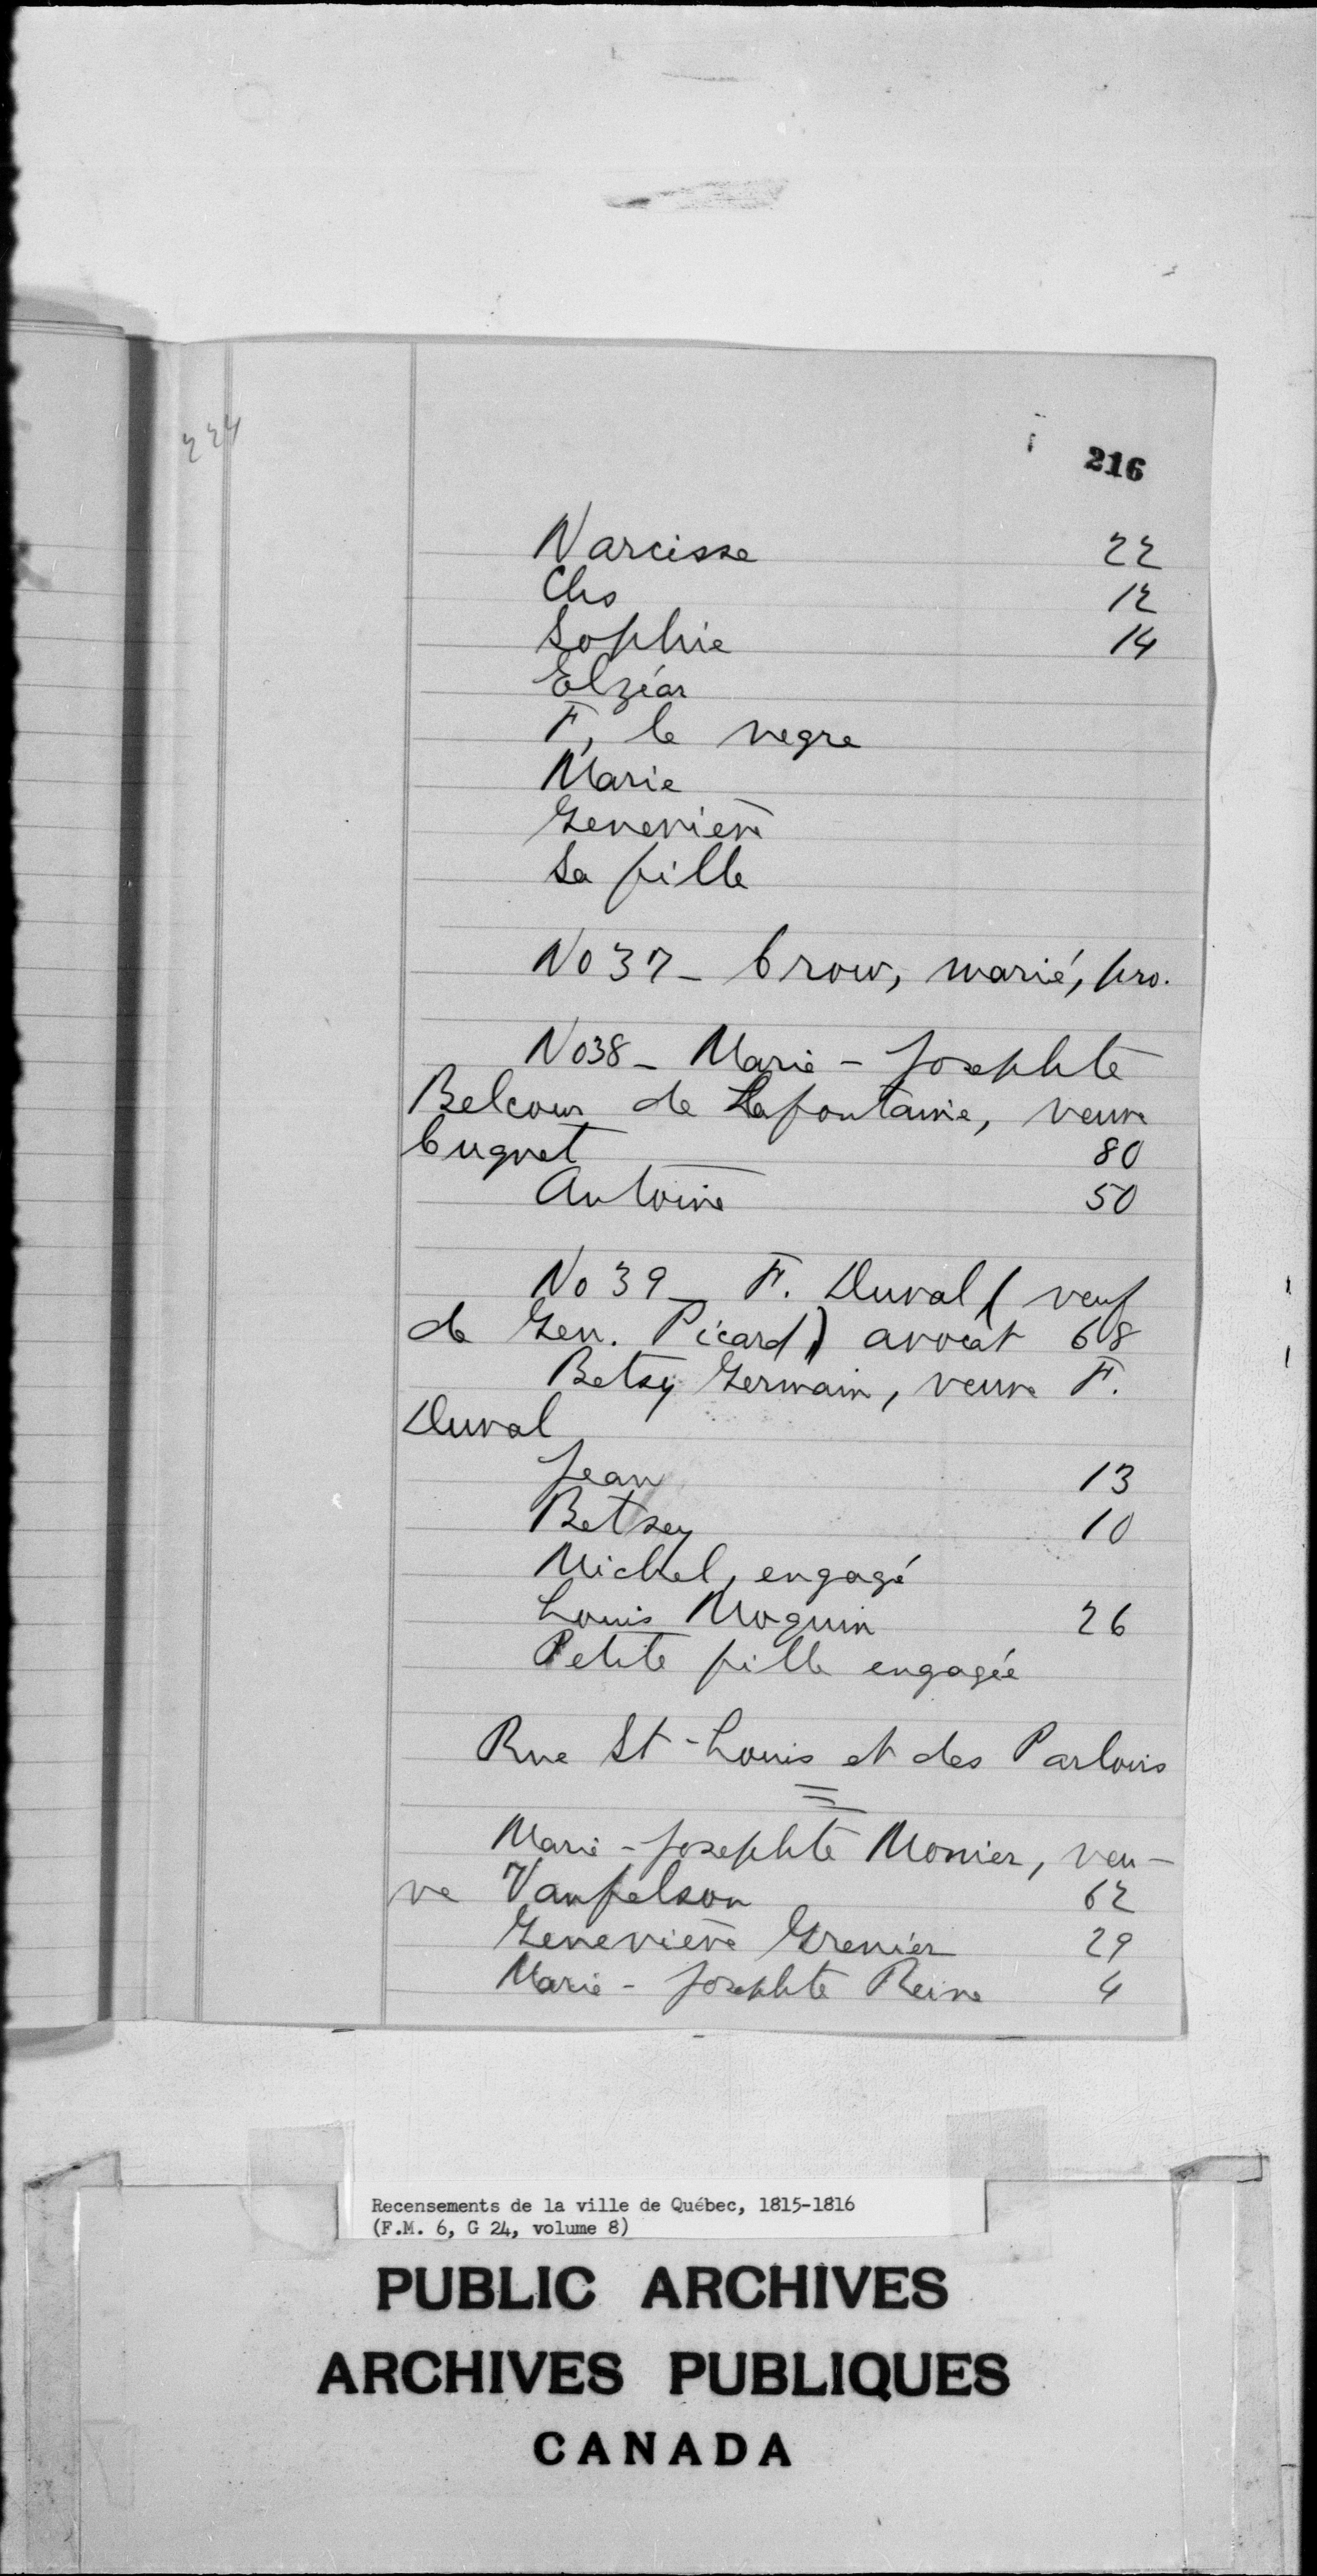 224
216
Narcisse 22
Chs 12
Sophie 14
Elzéar
F, le negre
Marie
Geneviève
Sa fille
No 37 - Crow, marié, pro.
No 38 - Marie - Josephte
Belcour de Lafontaine, veuve
Cugnet 80
Antoine 50
No 39 - F. Duval (veuf
de Gen. Picard) avocat 68
Betsy Germain, veuve F.
Duval
Jean 13
Betsey 10
Michel, engagé
Louis Moquin 26
Petite fille engagée
Rue St-Louis et des Parloirs
Marie-Josephte Monier, veu-
ve Vanfelson 62
Geneviève Grenier 29
Marie - Josephte Reine 4
Recensements de la ville de Québec, 1815-1816
(F.M. 6, G 24, volume 8)
PUBLIC ARCHIVES
ARCHIVES PUBLIQUES
CANADA